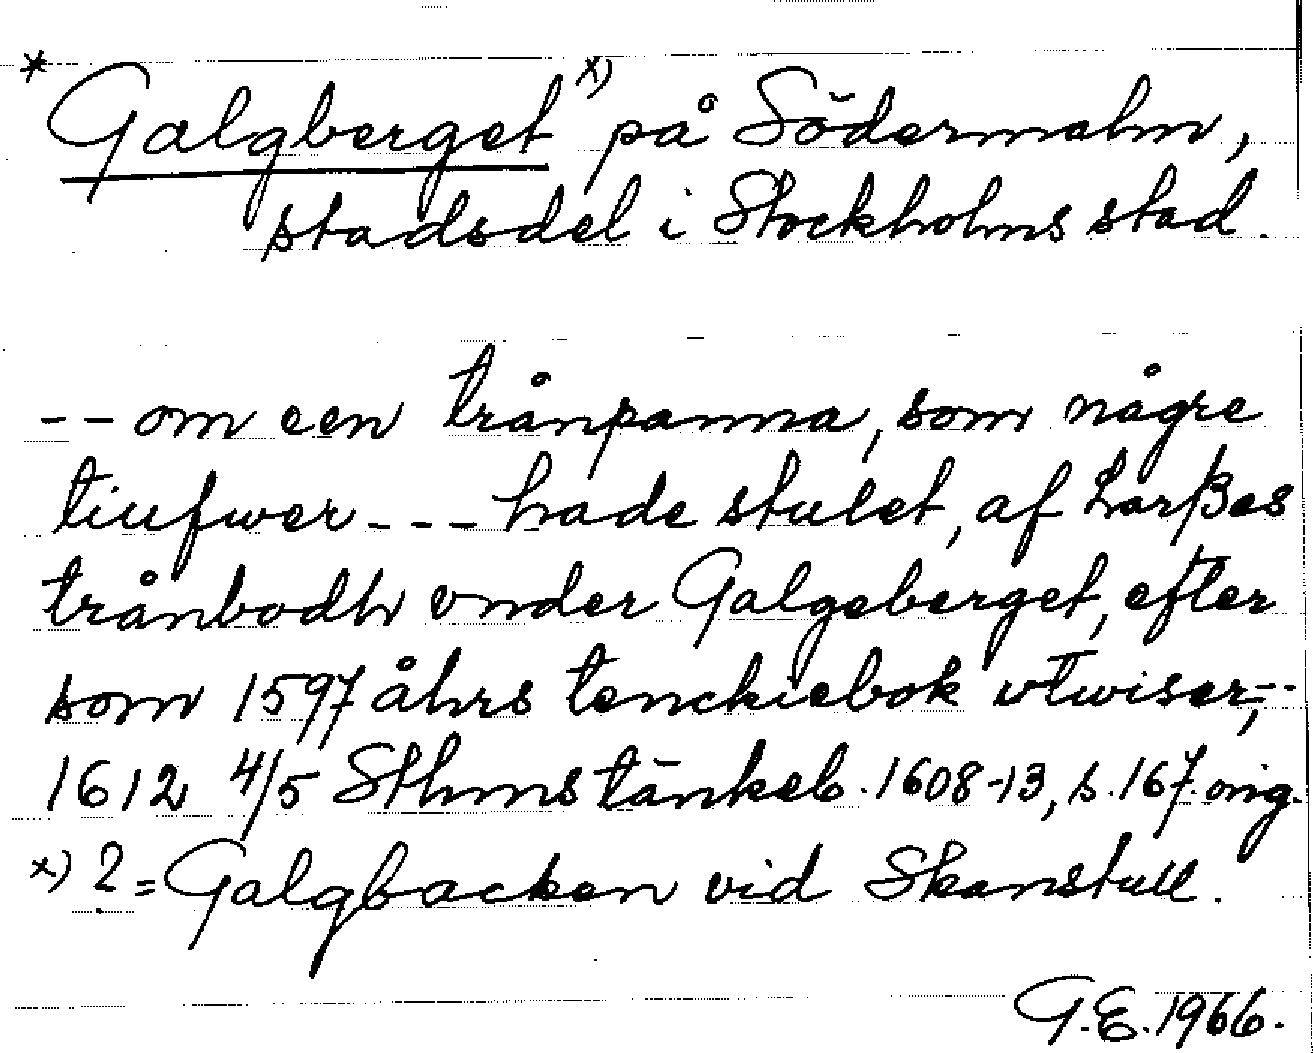 * Galgberget x) på Södermalm,
stadsdel i Stockholms stad.
-- om een trånpanna, som någre
tiufwer --- hade stulet, af Larßes
trånbodh vnder Galgeberget, efter
som 1597 åhrs tenckiebok vtwiser, --
1612 4/5 Sthms tänkeb. 1608-13, s. 167. orig.
x) ? = Galgbacken vid Skanstull.
G.E. 1966.